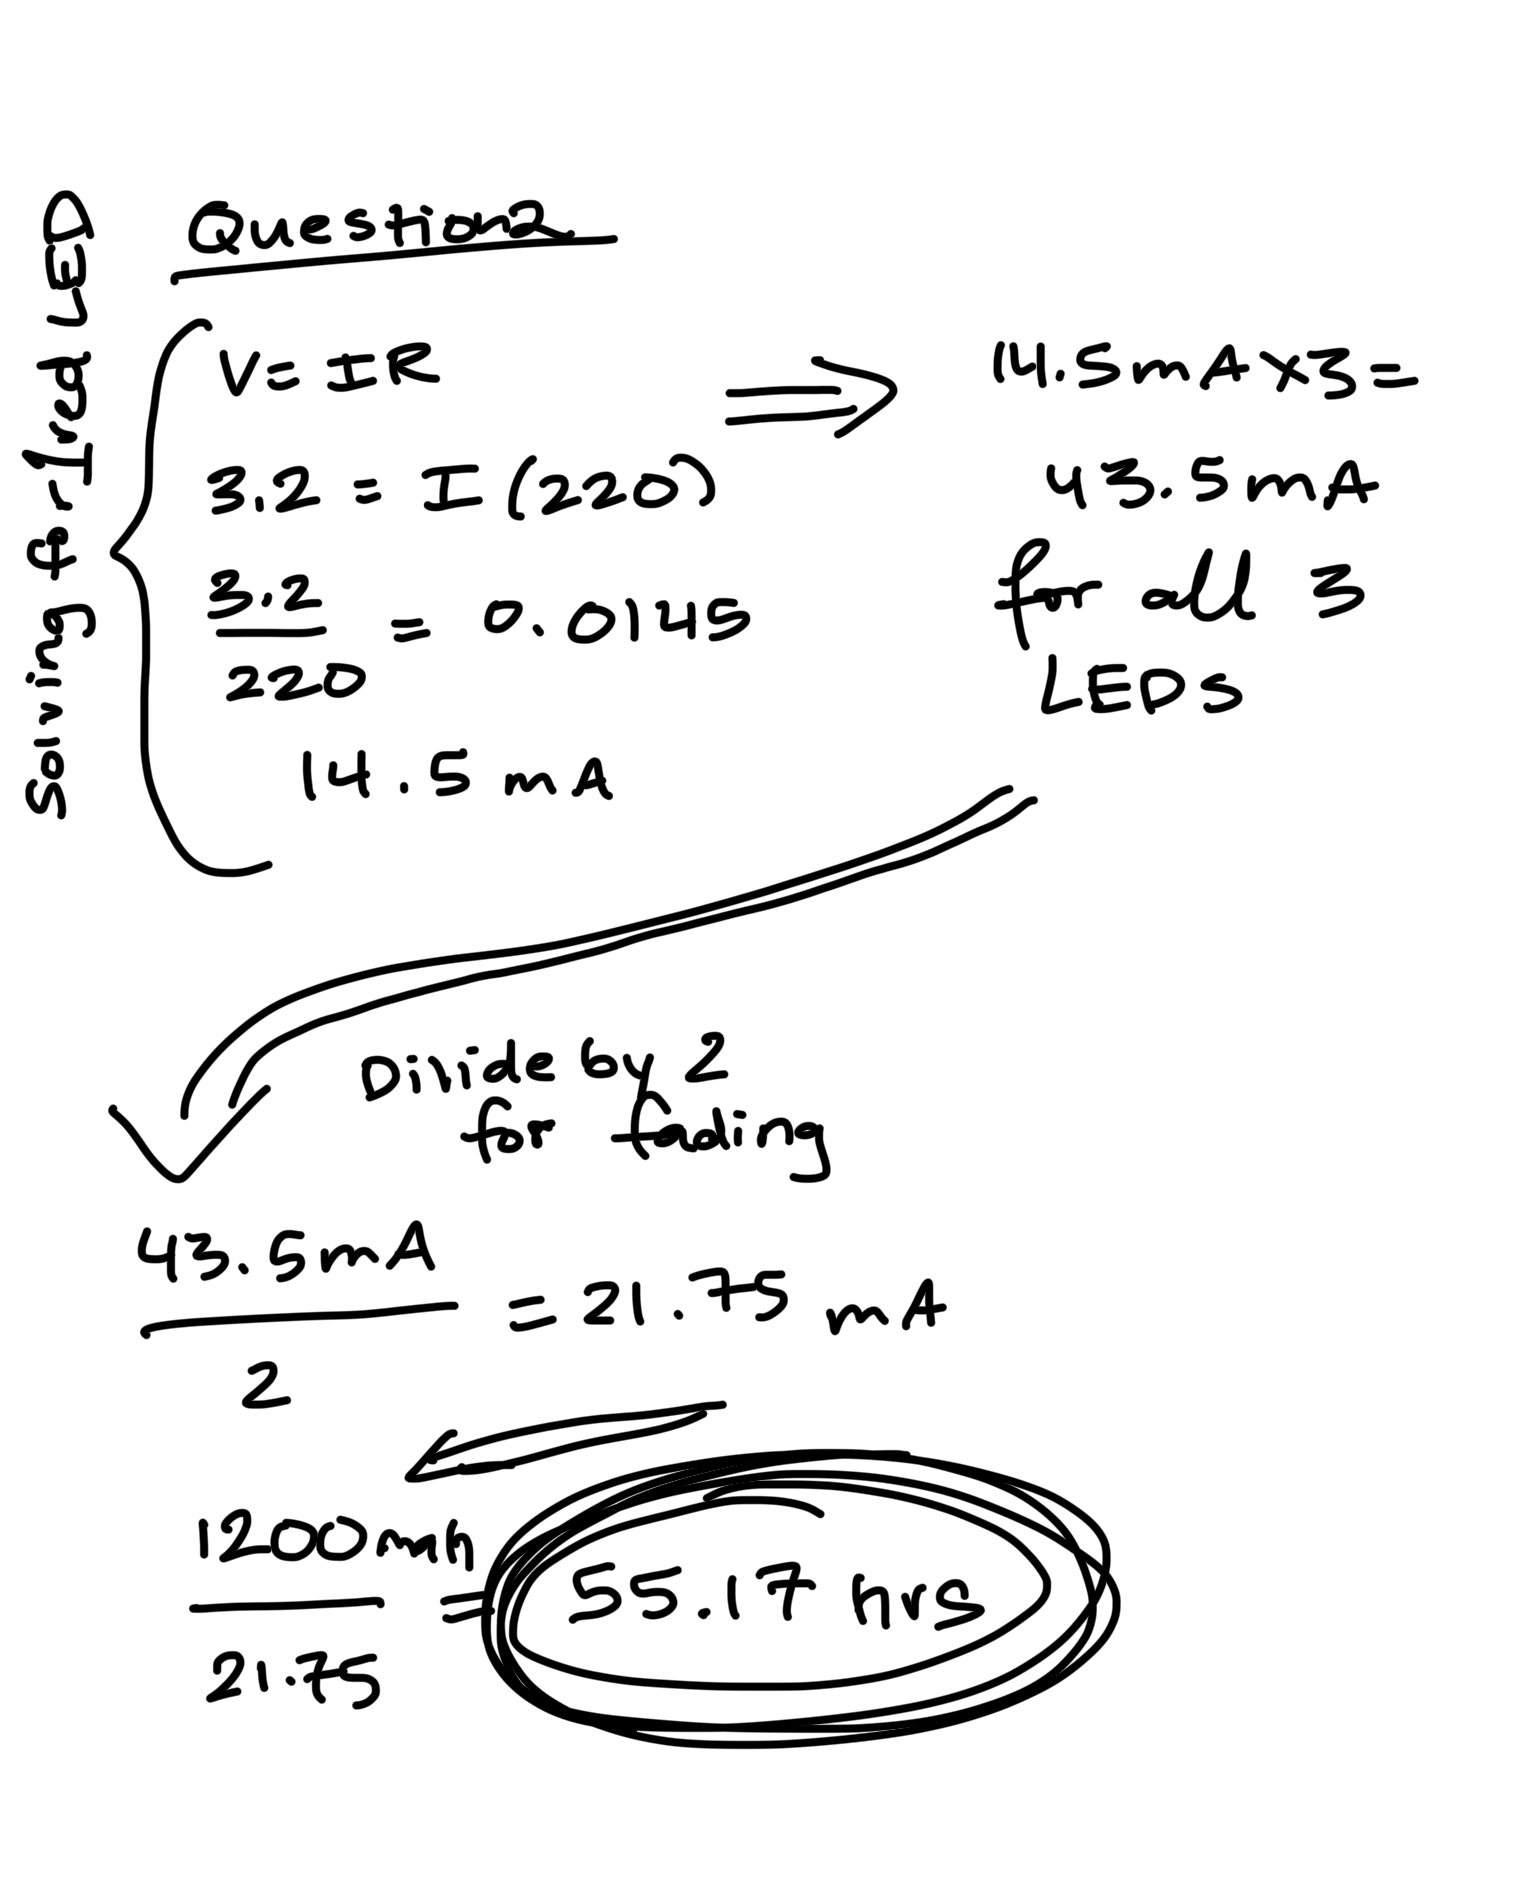 Question 2
Solving for 1 red LED
V = IR
3.2 = I (220)
3.2
220
= 0.0145
14.5 mA
14.5 mA x 3 =
43.5 mA
for all 3
LEDs
Divide by 2
for fading
43.5 mA
2
= 21.75 mA
1200 mAh
21.75
= 55.17 hrs